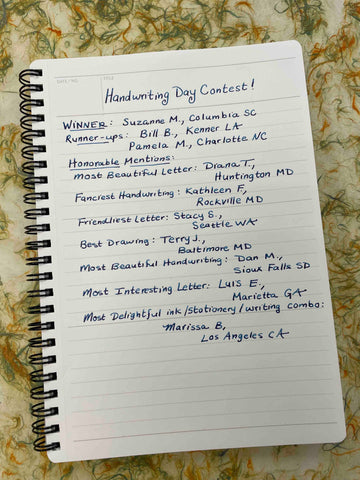 DATE / NO.
TITLE
Handwriting Day Contest!
WINNER: Suzanne M., Columbia SC
Runner-ups: Bill B., Kenner LA
Pamela M., Charlotte NC
Honorable Mentions:
most Beautiful Letter: Diana T.,
Huntington MD
Fanciest Handwriting: Kathleen F,
Rockville MD
Friendliest Letter: Stacy S.,
Seattle WA
Best Drawing: Terry J.,
Baltimore MD
Most Beautiful Handwriting: Dan M.,
Sioux Falls SD
Most Interesting Letter: Luis E.,
Marietta GA
Most Delightful ink/stationery/writing combo:
Marissa B,
Los Angeles CA